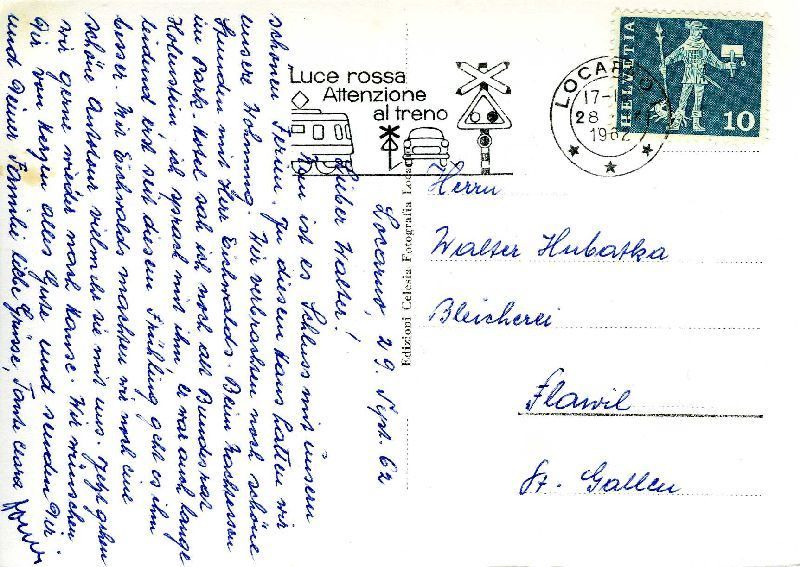 Locarno, 29. Sept. 62
Lieber Walter!
Nun ist es Schluss mit unsern
schönen Ferien. In diesem Haus hatten wir
unsere Wohnung. Wir verbrachten noch schöne
Stunden mit Herr Eichwalds. Beim Nachtessen
im Park-Hotel sah ich noch alt Bundesrat
Holenstein ich sprach mit ihm, er war auch lange
leidend erst seit diesem Frühling geht es ihm
besser. Mit Eichwalds machten wir noch eine
schöne Autotour vielmehr sie mit uns. Jetzt gehen
wir gerne wieder nach Hause. Wir wünschen
Dir von Herzen alles Gute und senden Dir
und Deiner Familie liebe Grüsse, Tante Clara
Luce rossa
Attenzione
al treno
LOCARNO
17-
28
1962
HELVETIA
10
Edizioni Celesia Fotografia Locarno
Herrn
Walter Hubatka
Bleicherei
Flawil
St. Gallen